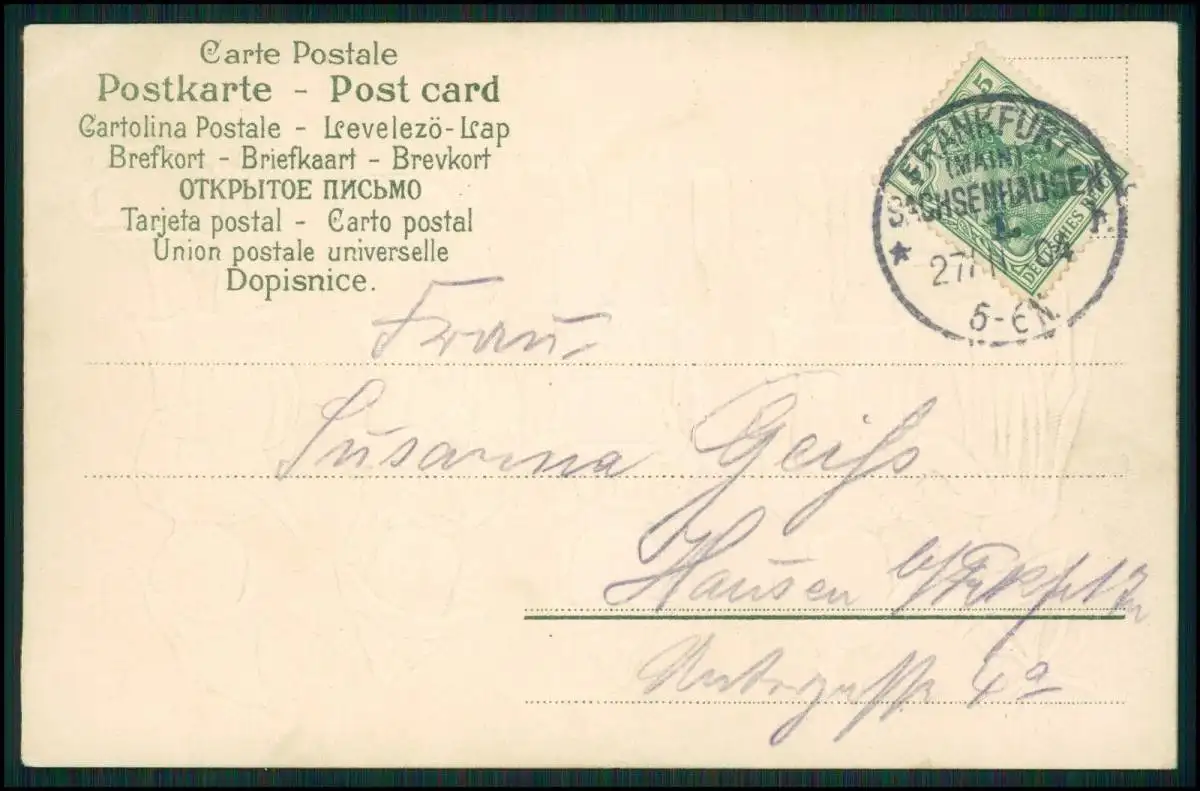 Carte Postale
Postkarte - Post card
Cartolina Postale - Levelezö-Lap
Brefkort - Briefkaart - Brevkort
ОТКРЫТОЕ ПИСЬМО
Tarjeta postal - Carto postal
Union postale universelle
Dopisnice.
5
FRANKFURT
(MAIN)
SACHSENHAUSEN
1.
04
5-6N.
Frau
Susanna Geiß
Hausen b/
4a